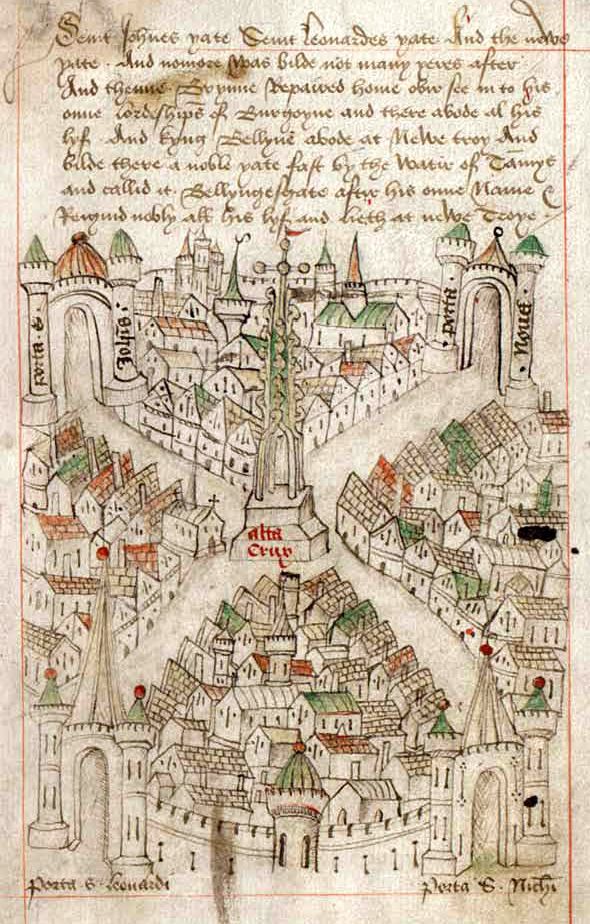 Seint Johnes yate Seint Leonardes yate And the newe
yate · And nomore was bilde not many yeres after
And thenne · Brynne Repaired home ovir see in to his
onne lordeships of Burgoyne and there abode al his
lyf · And kyng Bellyne abode at Newe troy And
bilde there a noble yate fast by the watir of Tamys
and callid it · Bellyngesgate aftir his onne Name &
Reigned nobly all his lyf and lieth at newe Troye ·
porta S·
Johis·
porta
Nova·
alta
Crux
porta S· Leonardi
porta S· Nichi